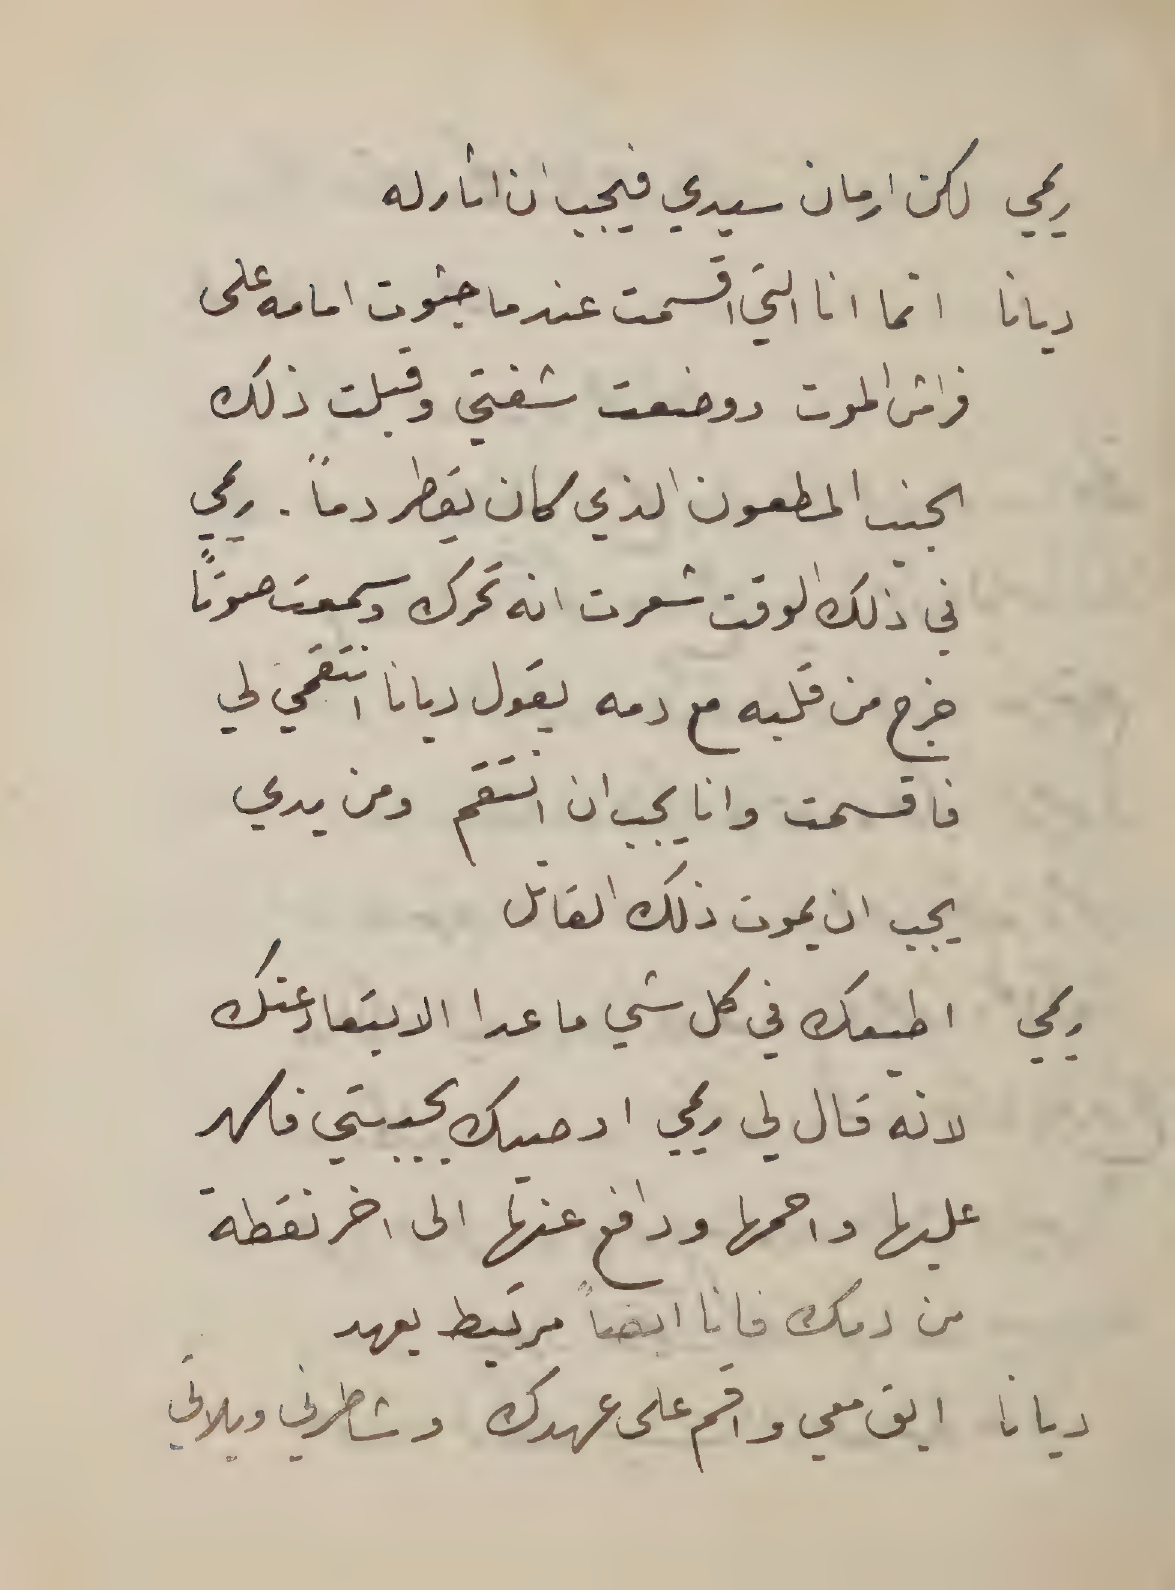 ريمي لكن ارمان سيدي فيجب ان اثار له
ديانا انما انا التي اقسمت عندما جثوت امامه على
فراش الموت ووضعت شفتي وقبلت ذلك
الجنب المطعون الذي كان يقطر دماً. ريمي
في ذلك الوقت شعرت انه تحرك وسمعت صوتاً
خرج من قلبه مع دمه يقول ديانا انتقمي لي
فاقسمت وانا يجب ان انتقم ومن يدي
يجب ان يموت ذلك القاتل
ريمي اطيعك في كل شي ما عدا الابتعاد عنك
لانه قال لي ريمي اوصيك بحبيبتي فاسهر
عليها واحمها ودافع عنها الى اخر نقطة
من دمك فانا ايضاً مرتبط بعهد
ديانا ابق معي واقم على عهدك وشاطرني ويلاتي